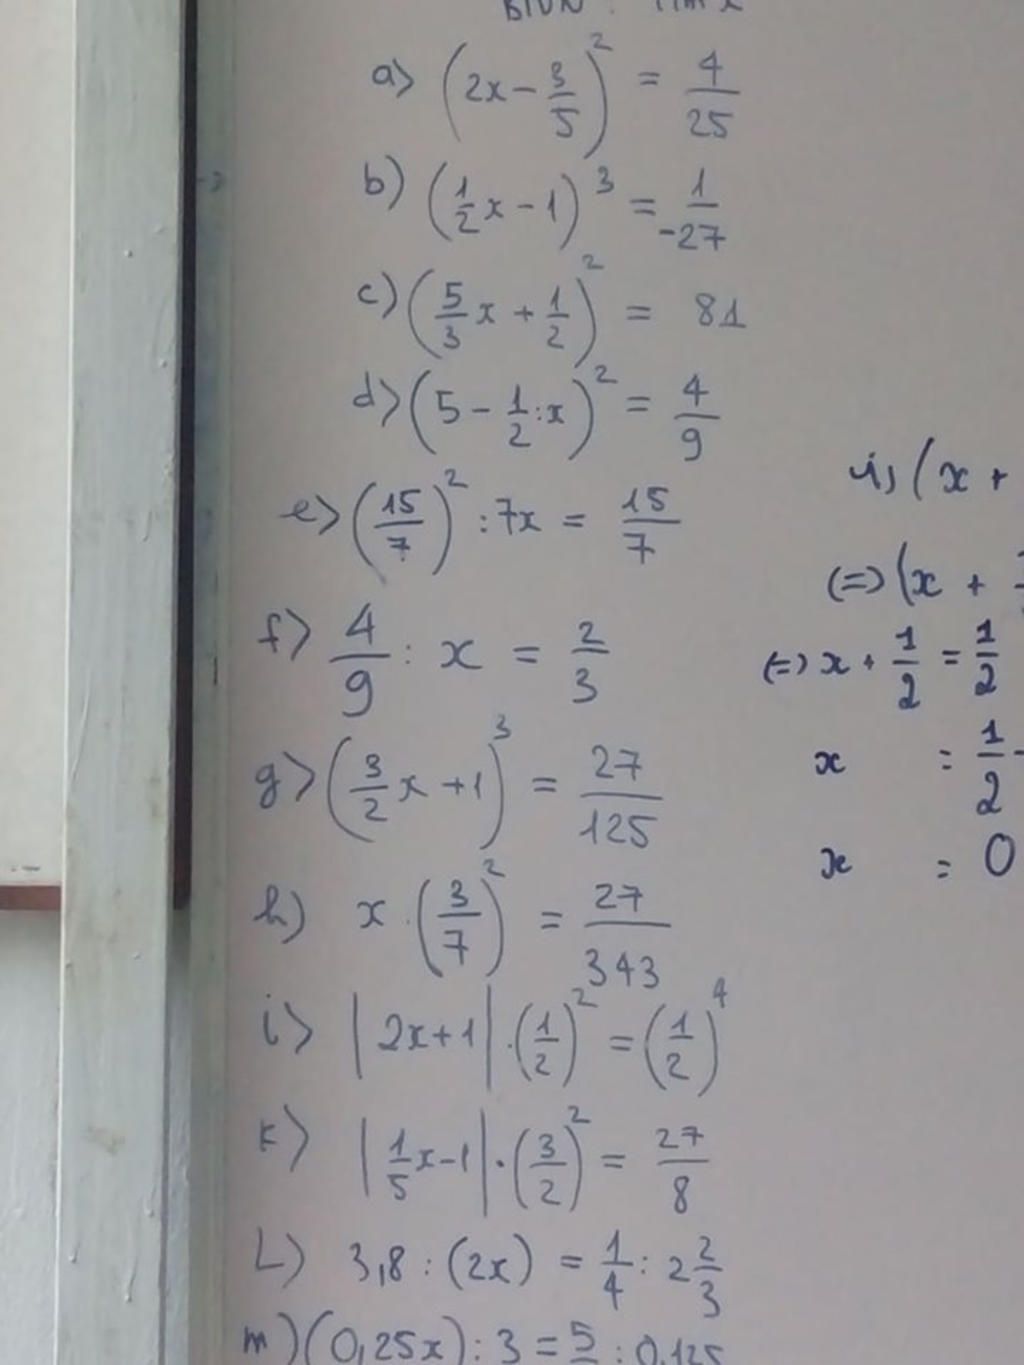 a) (2x - 3/5)² = 4/25
b) (1/2 x - 1)³ = 1/-27
c) (5/3 x + 1/2)² = 81
d) (5 - 1/2 : x)² = 4/9
e) (15/7)² : 7x = 15/7
f) 4/9 : x = 2/3
g) (3/2 x + 1)³ = 27/125
h) x . (3/7)² = 27/343
i) |2x + 1| . (1/2)² = (1/2)⁴
k) |1/5 x - 1| . (3/2)² = 27/8
L) 3,8 : (2x) = 1/4 : 2 2/3
m) (0,25x) : 3 = 5/ : 0,125
(x +
(=> (x +
(=) x + 1/2 = 1/2
x = 1/2 -
x = 0